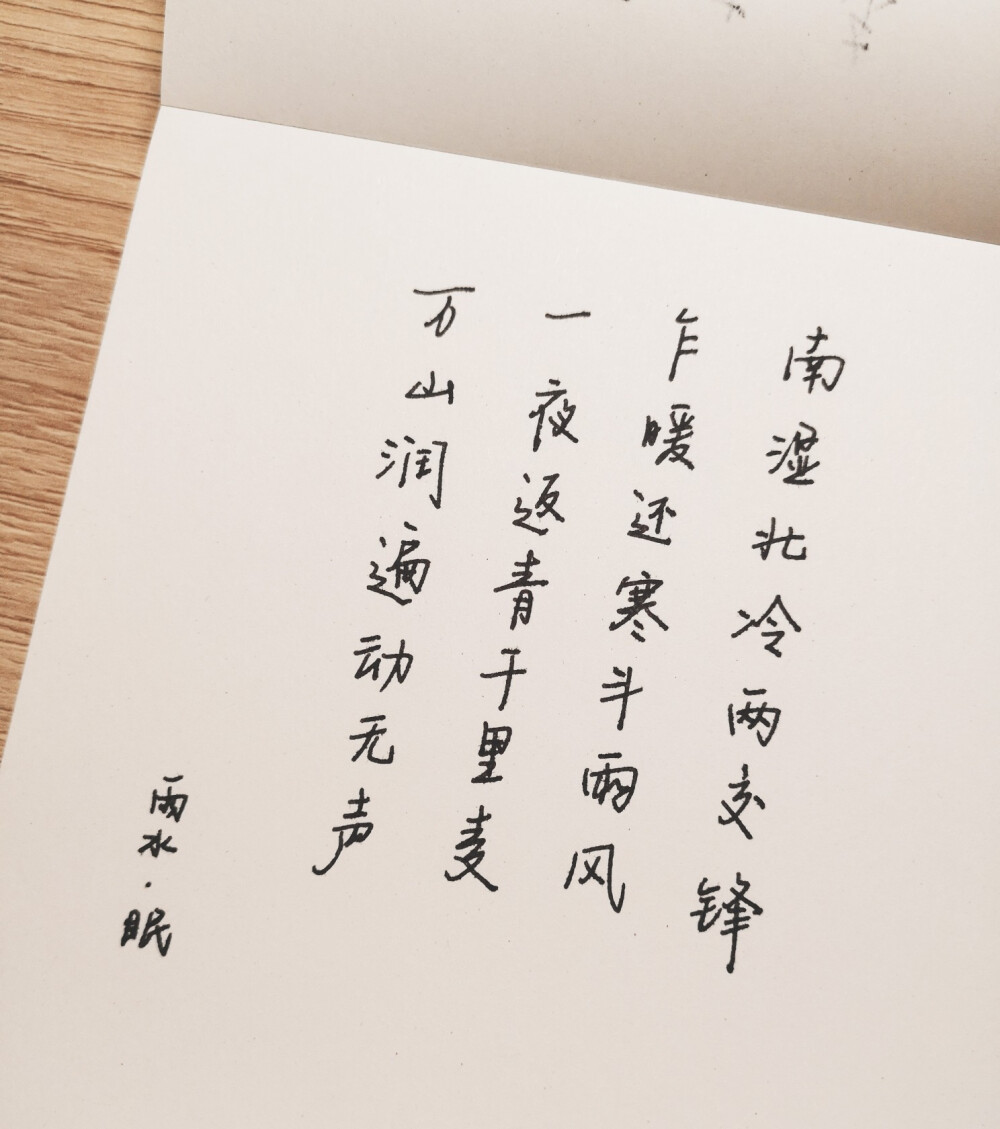 南湿北冷两交锋
乍暖还寒斗雨风
一夜返青千里麦
万山润遍动无声
雨水·眠